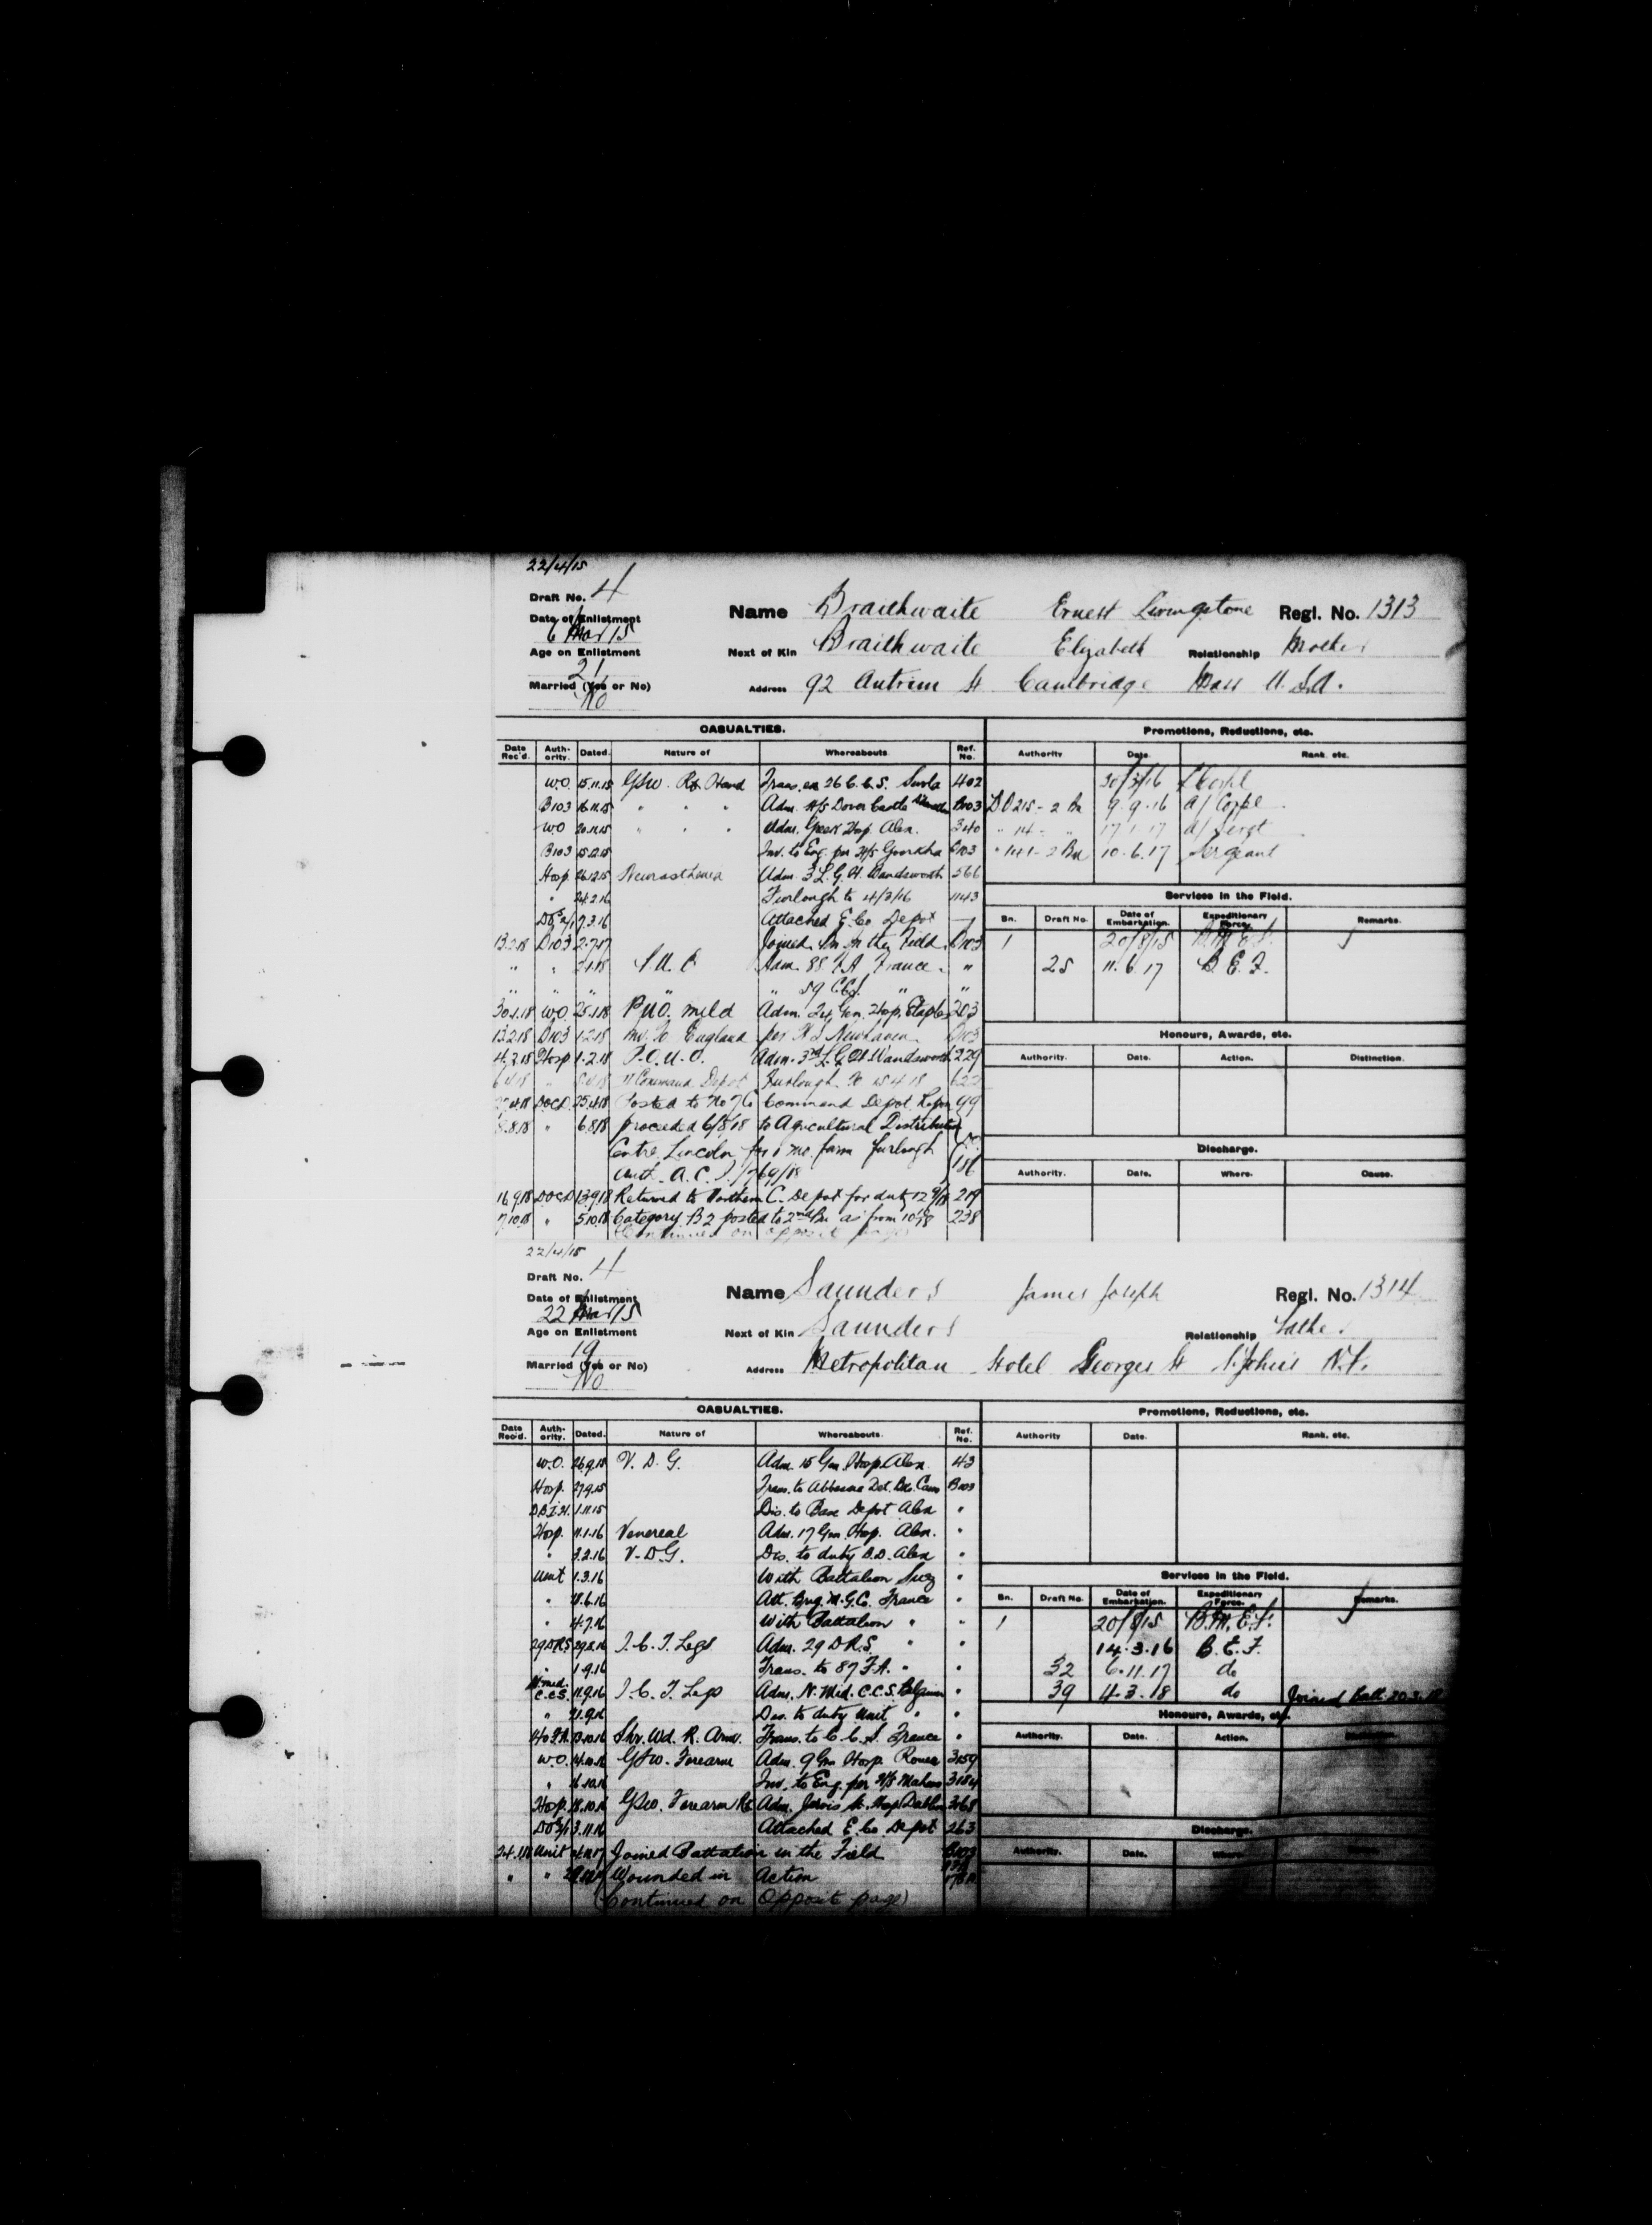 22/4/15
Draft No. 4
Date of Enlistment
6 Mar/15
Age on Enlistment
21
Married (Yes or No)
No
Name Braithwaite Ernest Livingstone Regl. No. 1313
Next of Kin Braithwaite Elizabeth Relationship Mother
Address 92 Antrim St. Cambridge Mass U.S.A.
CASUALTIES.
Date Rec'd. Authority. Dated. Nature of Whereabouts. Ref. No.
W.O. 15.11.15 GSW. Rt. Hand Trans. 26 C.C.S. Suvla 402
B103 16.11.15 " " " Adm. H/S Dover Castle B103
WO 20.11.15 " " " Adm. Greek Hosp. Alex. 340
B103 15.12.15 Inv. to Eng. per H/S Goorkha B103
Hosp 26.12.15 Neurasthenia Adm. 3 L.G.H. Wandsworth 566
" 24.2.16 Furlough to 4/3/16 1143
7.3.16 Attached E. Co Depot
13.2.18 B103 2.7.17 Joined Bn in the Field B103
" " 21.1.18 Adm. 88 F.A France "
" " " " 59 CCS. " "
30.1.18 W.O. 25.1.18 PUO. mild Adm. 24 Gen. Hosp. Etaples 203
13.2.18 B103 1.2.18 Inv. to England per H S Newhaven B103
4.2.18 Hosp 1.2.18 P.O.U.O. Adm. 3rd L.G.H. Wandsworth 229
Command Depot Furlough to 15 4 18 622
DOCD 25.4.18 Posted to No 7 Co Command Depot Ripon 99
8.8.18 " 6.8.18 proceeded 6/8/18 to Agricultural Distribution
Centre Lincoln for 1 mo. farm furlough
Auth. A.C.I./769/18
16.9.18 DOCD 13.9.18 Returned to Northern C. Depot for duty 12 9/18 219
7.10.18 " 5.10.18 Category B2 posted to 2nd Bn as from 238
(Continued on opposit page)
Promotions, Reductions, etc.
Authority Date. Rank. etc.
30/3/16 L/Corpl
DO 215 - 2 Bn 9.9.16 a/ Corpl
" 14 - " 17.1.17 a/ Sergt
" 141 - 2 Bn 10.6.17 Sergeant
Services in the Field.
Bn. Draft No. Date of Embarkation. Expeditionary Force. Remarks.
1 20/8/15 B.M.E.F.
25 11.6.17 B.E.F.
Honours, Awards, etc.
Authority. Date. Action. Distinction.
Discharge.
Authority. Date. Where. Cause.
22/4/15
Draft No. 4
Date of Enlistment
22 Mar/15
Age on Enlistment
19
Married (Yes or No)
No
Name Saunders James Joseph Regl. No. 1314
Next of Kin Saunders Relationship Father
Address Metropolitan Hotel Georges St St Johns N.F.
CASUALTIES.
Date Rec'd. Authority. Dated. Nature of Whereabouts. Ref. No.
W.O. 26.9.15 V.D.G. Adm. 15 Gen. Hosp. Alex. 43
Hosp. 27.9.15 Trans. to Abbassia Det. Bks. Cairo B103
1.11.15 Dis. to Base Depot Alex "
Hosp. 11.1.16 Venereal Adm. 17 Gen. Hosp. Alex. "
" 3.2.16 V.D.G. Dis. to duty B.D. Alex "
Unit 1.3.16 With Battalion Suez "
" 4.6.16 Att. Brig. M.G.Co. France "
" 4.7.16 With Battalion " "
29 D.R.S 29.8.16 I.C.T. Legs Adm. 29 D.R.S. " "
" 1.9.16 Trans. to 87 F.A. " "
N. Mid. C.C.S. 11.9.16 I.C.T. Legs Adm. N. Mid. C.C.S. Belgium "
" 21.9.16 Dis. to duty Unit " "
13.10.16 Shr. Wd. R. Arm. Trans. to C.C.S. France "
W.O. 14.10.16 GSW. Forearm Adm. 9 Gen Hosp Rouen 3159
" 16.10.16 Inv. to Eng. per H/S 3184
Hosp. 18.10.16 GSW. Forearm Rt. Adm. Jervis St. Hosp Dublin 3168
3.11.16 Attached E. Co. Depot 263
24.1.18 Unit Joined Battalion in the Field B103
" " Wounded in Action
(Continued on Opposit page)
Promotions, Reductions, etc.
Authority Date. Rank. etc.
Services in the Field.
Bn. Draft No. Date of Embarkation. Expeditionary Force. Remarks.
1 20/8/15 B.M.E.F.
14.3.16 B.E.F.
32 6.11.17 do
39 4.3.18 do Joined Batt. 20.3.18
Honours, Awards, etc.
Authority. Date. Action.
Discharge.
Authority. Date. Where.